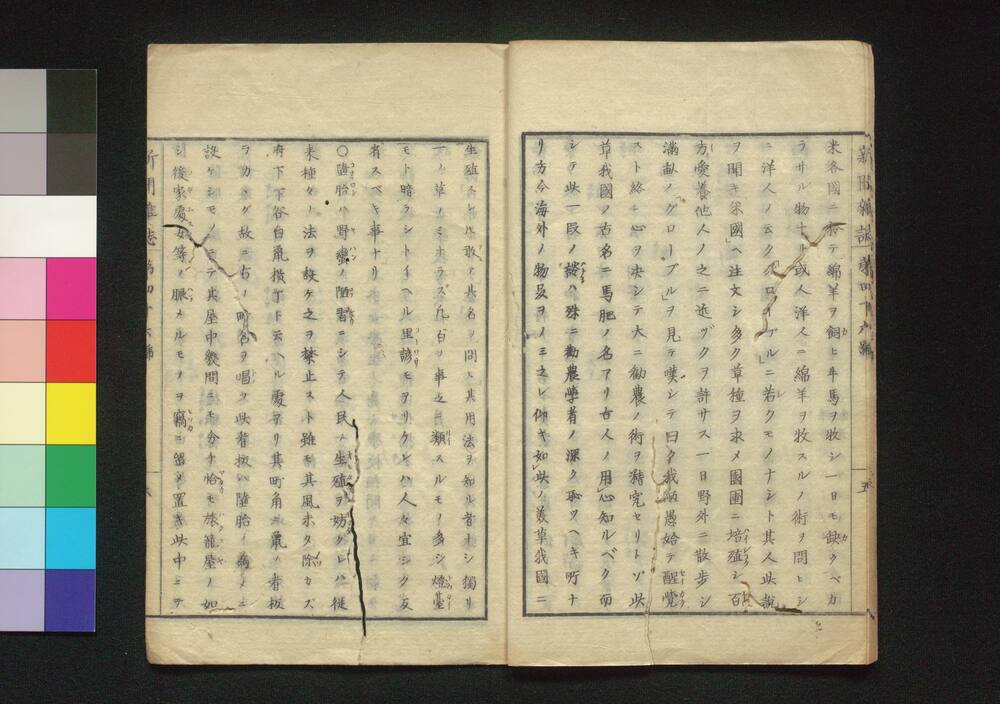 新聞雑誌 第四十六號
五
米各國ニ於テ綿羊ヲ飼ヒ牛馬ヲ牧シ一日モ缺クベカ
ラサル物ナリ或人洋人ニ綿羊ヲ牧スルノ術ヲ問ヒシ
ニ洋人ノ云ククローブルニ若クモノナシト其人此說
ヲ聞キ米國ヘ注文シ多ク草種ヲ求メ園圃ニ培殖シ百
方愛養他人ノ之ニ近ヅクヲ許サス一日野外ニ散歩シ
滿畝ノ「グローブル」ヲ見テ嘆シテ曰ク我頑愚始テ醒覺
スト終ニ心ヲ決シテ大ニ勸農ノ術ヲ精究セリトゾ此
草我國ノ古名ニ馬肥ノ名アリ古人ノ用心知ルベク而
シテ此一段ノ話ハ殊ニ勸農學者ノ深ク恥ヅヘキ所ナ
リ方今海外ノ物品ヲノミ之レ仰キ如此ノ美草我國ニ
生殖スレ𪜈敢テ其名ヲ問ヒ其用法ヲ知ル者ナシ獨リ
一ノ草ノミナラズ凡百ノ事之ニ類スルモノ多シ燈臺
モト暗ラシトイヘル里諺モアリケレハ人々宜シク反
省スベキ事ナリ
〇墮胎ハ野蠻ノ陋習ニシテ人民ノ生殖ヲ妨クレハ從
来種々ノ法ヲ設ケ之ヲ禁止スト雖モ其風ホタ除カズ
府下下谷白鼠橫丁ト云ヘル處アリ其町角ニ鼠ノ看板
ヲカケシ故ニ右ノ町名ヲ唱ク此看板ハ墮胎ノ為メニ
設ケシモノニテ其屋中數間ニ區分ナ恰モ旅籠屋ノ如
シ後家處女等ノ脈メルモノヲ竊ニ留メ置キ此中ニテ
新聞雑誌 第四十六號
六